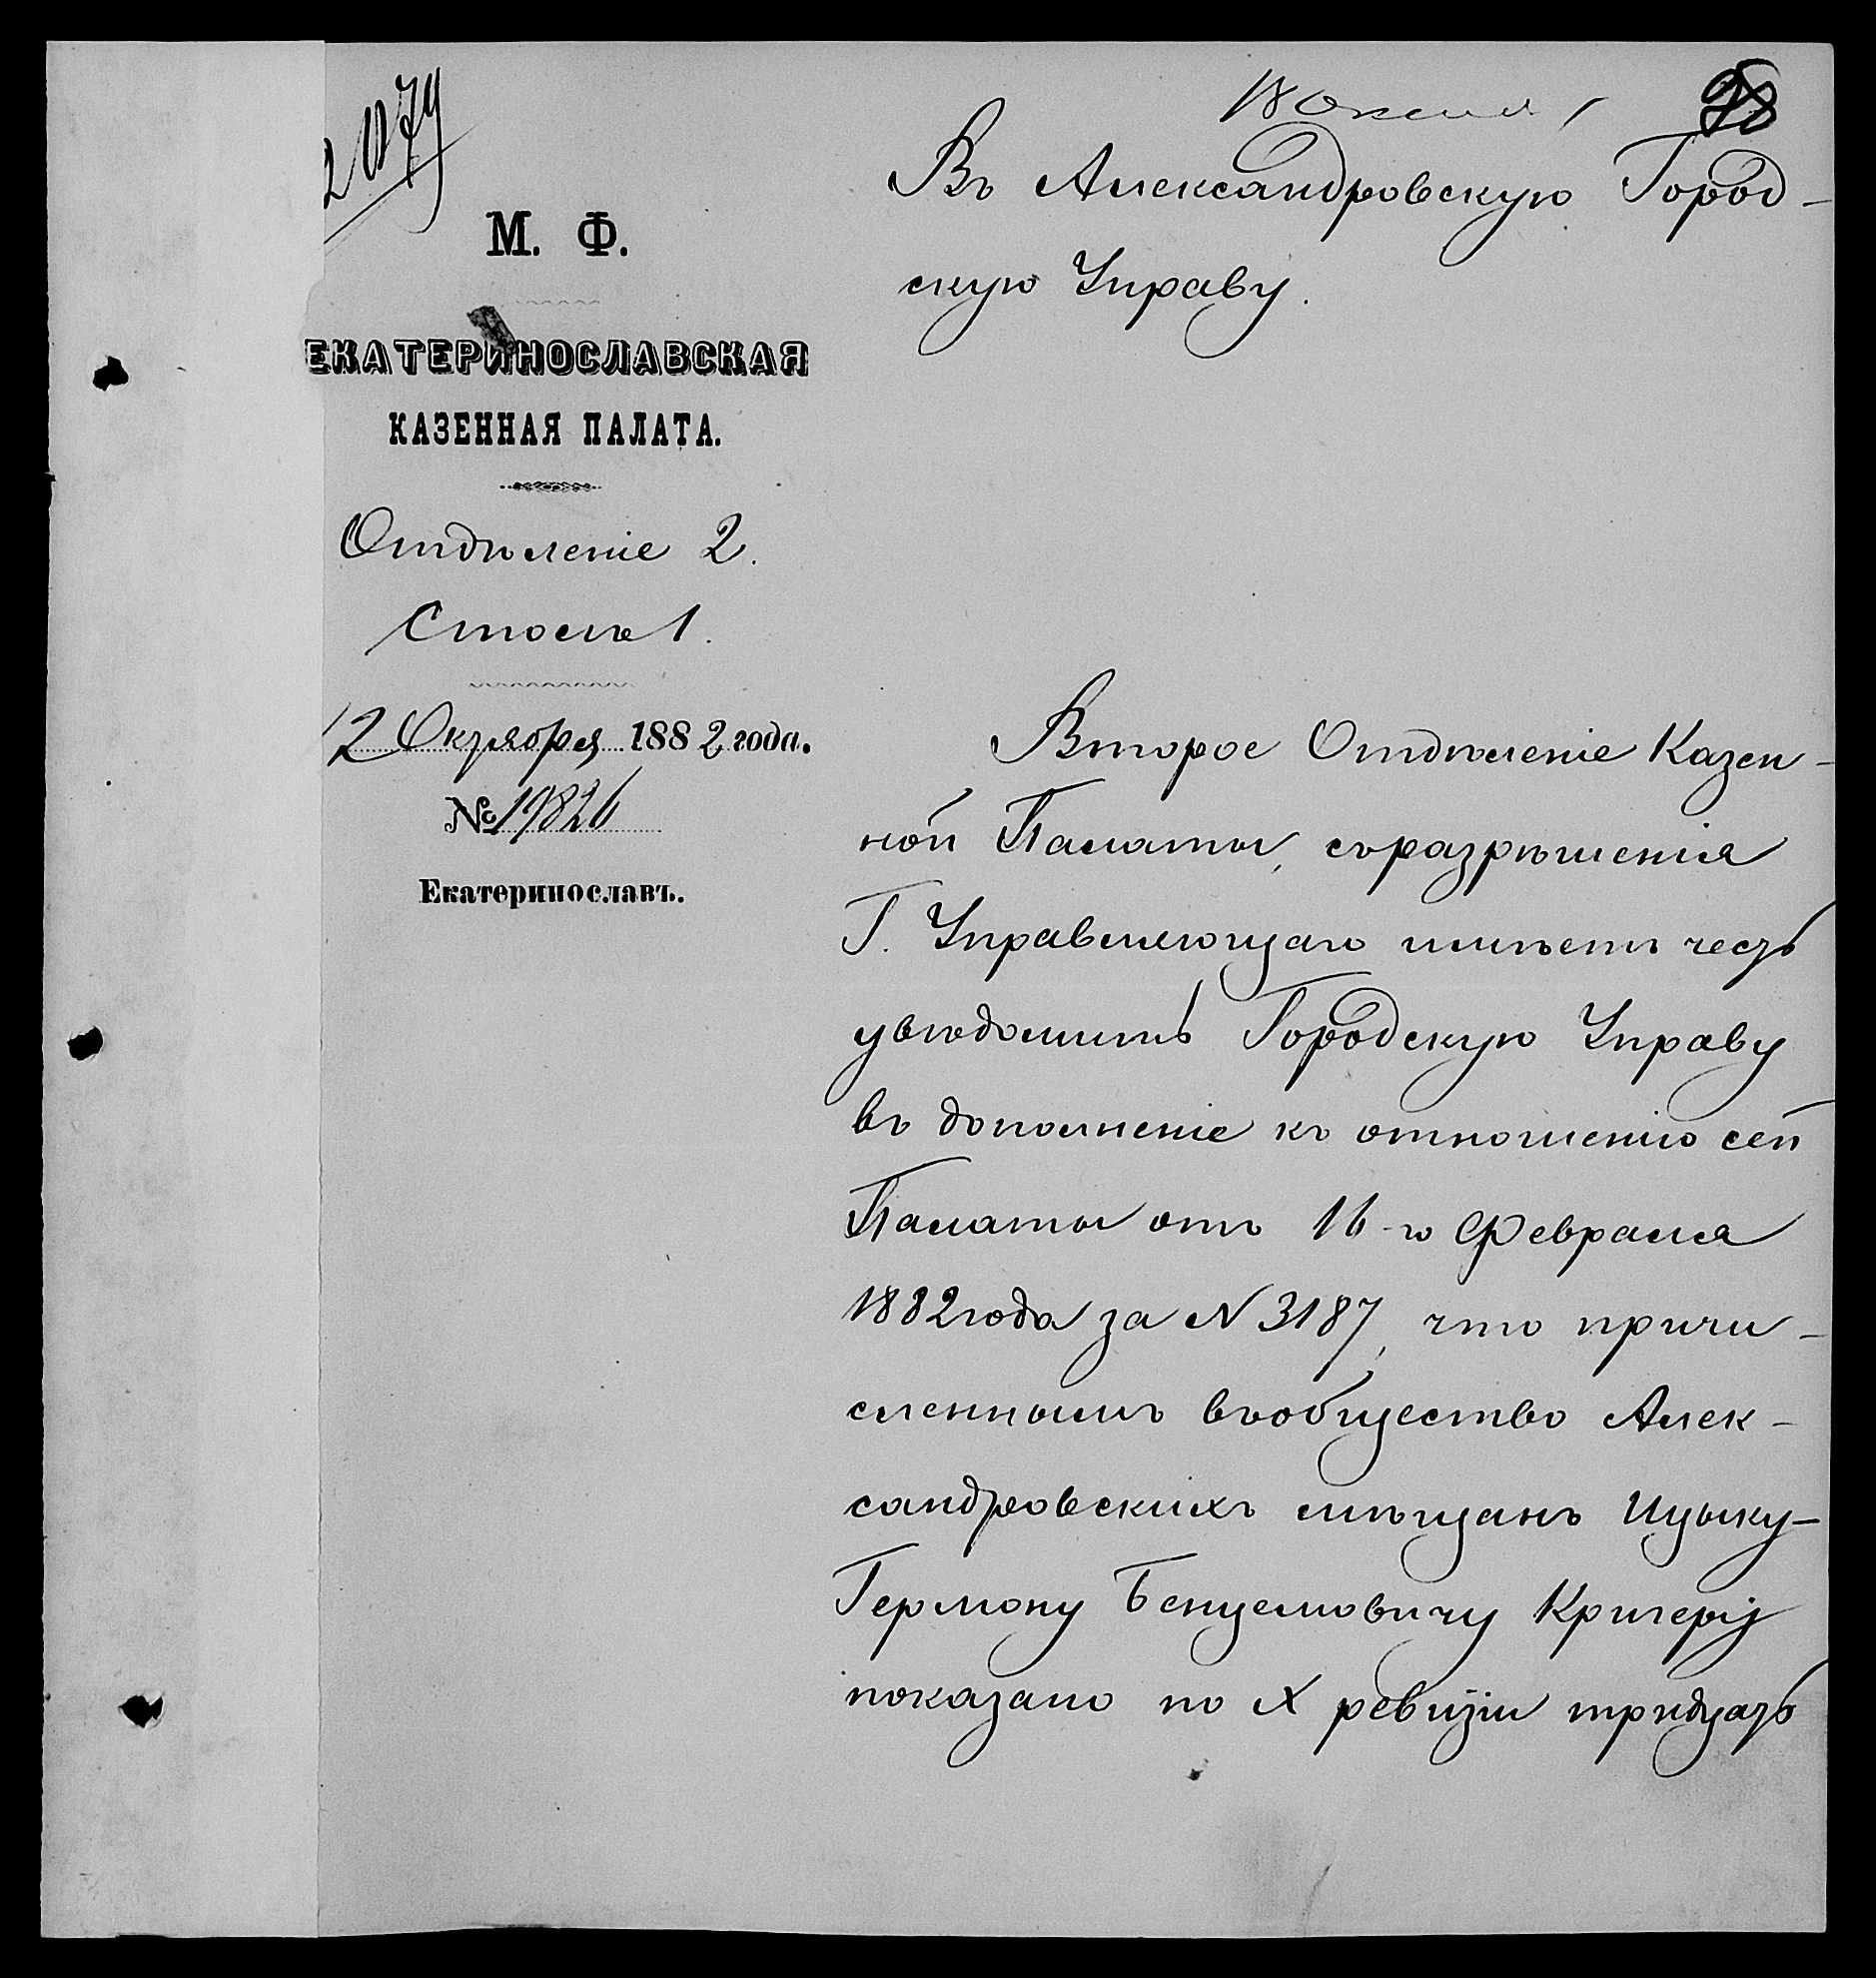 2079
18 Октя
М. Ф.
ЕКАТЕРИНОСЛАВСКАЯ
КАЗЕННАЯ ПАЛАТА.
Отдѣленіе 2.
Столъ 1.
12 Октября 1882 года.
№ 19826
Екатеринославъ.
Въ Александровскую Город-
скую Управу.
Второе Отдѣленіе Казен-
ной Палаты, съ разрѣшенія
Г. Управляющаго имѣетъ честь
увѣдомить Городскую Управу
въ дополненіе къ отношенію сей
Палаты отъ 16-го Февраля
1882 года за N 3187, что причи-
сленнымъ въ общество Алек-
сандровскихъ мѣщанъ Ицыку-
Гермону Бенцемовичу Кригеру
показано по X ревизіи тридцать